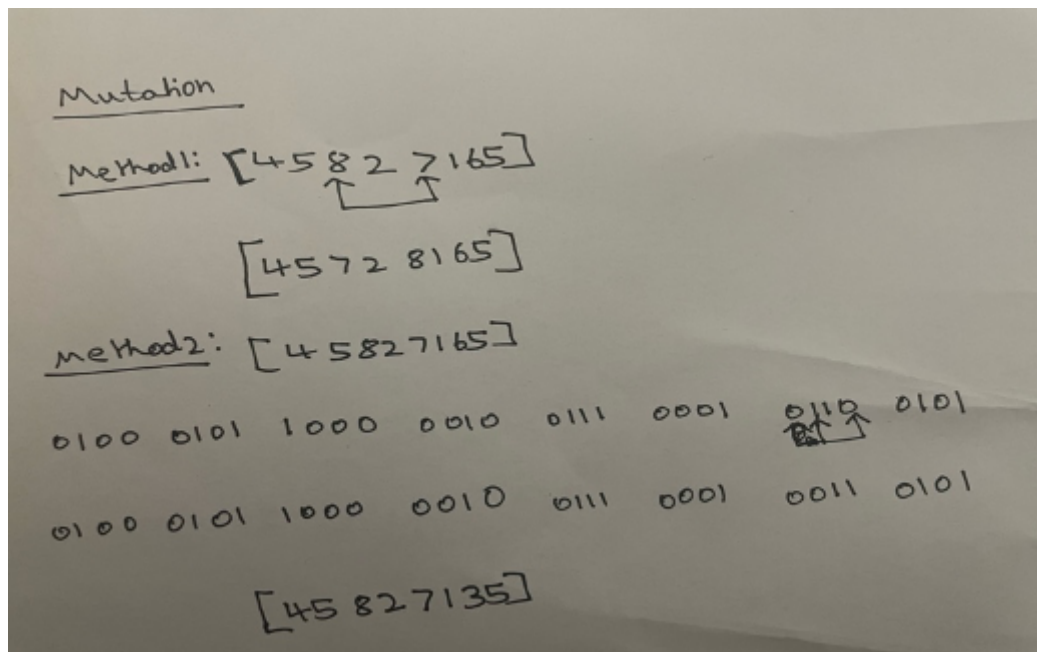 Mutation
Method1: [45827165]
[45728165]
Method2: [45827165]
0100 0101 1000 0010 0111 0001 0110 0101
0100 0101 1000 0010 0111 0001 0011 0101
[45827135]